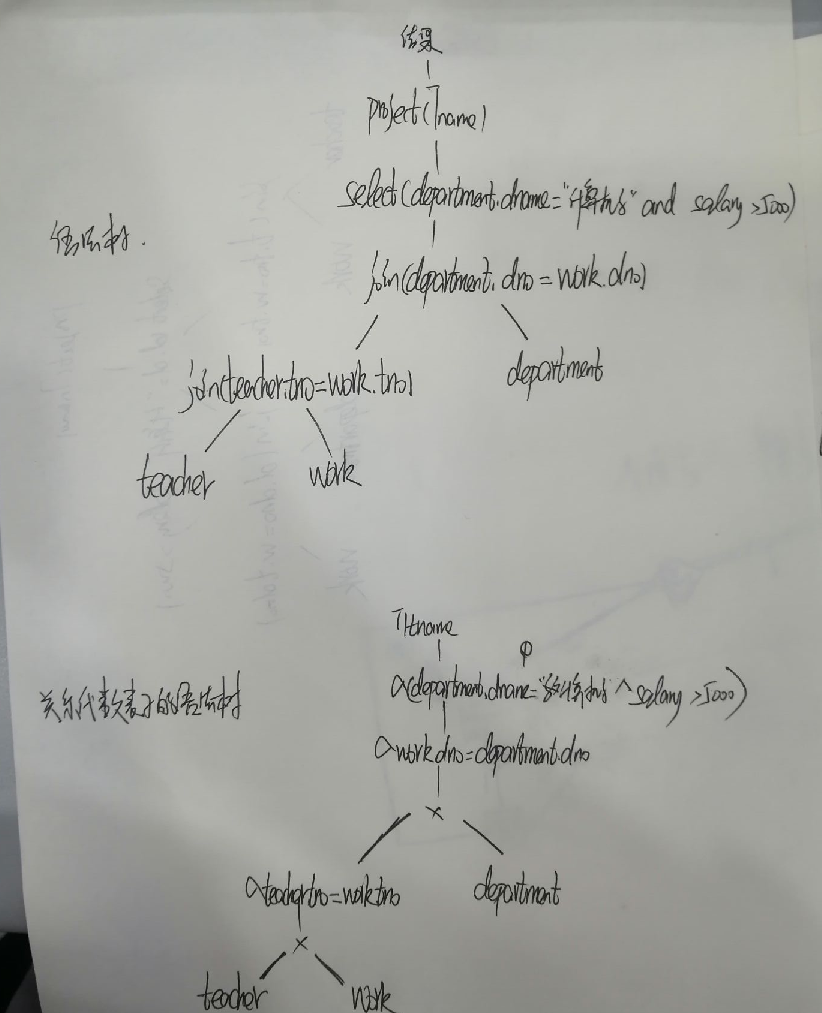 结果
project(Tname)
select(department.dname="计算机系" and salary >5000)
语法树.
join(department.dno=work.dno)
join(teacher.tno=work.tno)
department
teacher
work
πtname
σ(department.dname="计算机系" ^ salary >5000)
关系代数表示的语法树
σwork.dno=department.dno
×
σteacher.tno=work.tno
department
×
teacher
work